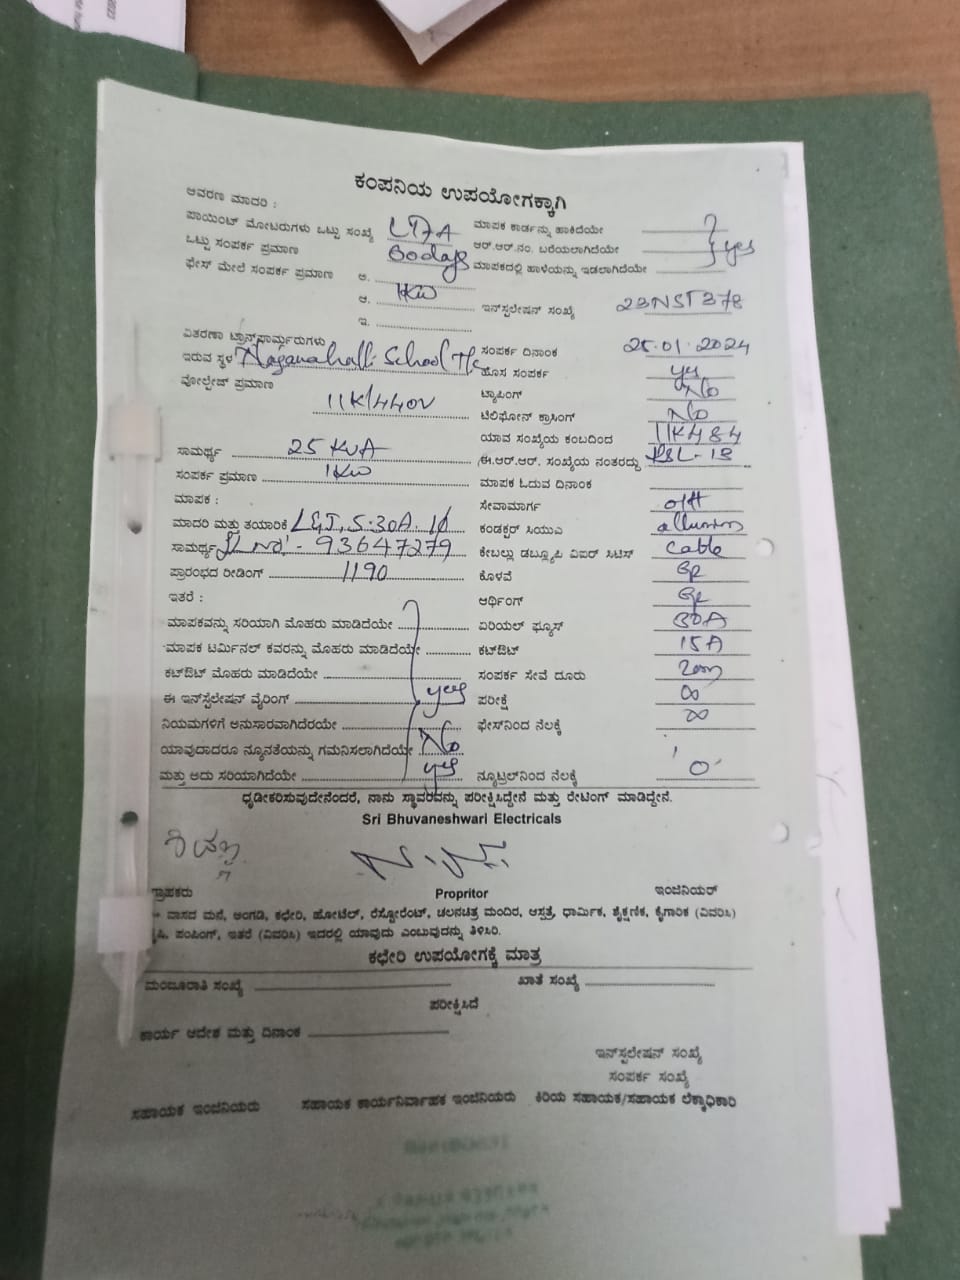 ಕಂಪನಿಯ ಉಪಯೋಗಕ್ಕಾಗಿ
ಆವರಣ ಮಾದರಿ :
ಪಾಯಿಂಟ್ ಮೋಟರುಗಳು ಒಟ್ಟು ಸಂಖ್ಯೆ ಮಾಪಕ ಕಾರ್ಡನ್ನು ಹಾಕಿದೆಯೇ
ಒಟ್ಟು ಸಂಪರ್ಕ ಪ್ರಮಾಣ ಆರ್.ಆರ್.ನಂ. ಬರೆಯಲಾಗಿದೆಯೇ yes
ಫೇಸ್ ಮೇಲೆ ಸಂಪರ್ಕ ಪ್ರಮಾಣ ಅ. ಮಾಪಕದಲ್ಲಿ ಹಾಳೆಯನ್ನು ಇಡಲಾಗಿದೆಯೇ
ಆ. 1KW ಇನ್‌ಸ್ಟಲೇಷನ್ ಸಂಖ್ಯೆ 23NST378
ಇ.
ವಿತರಣಾ ಟ್ರಾನ್ಸ್‌ಫಾರ್ಮರುಗಳು ಸಂಪರ್ಕ ದಿನಾಂಕ 25.01.2024
ಇರುವ ಸ್ಥಳ Naganahalli School T/c ಹೊಸ ಸಂಪರ್ಕ yes
ವೋಲ್ಟೇಜ್ ಪ್ರಮಾಣ 11K/440V ಟ್ಯಾಪಿಂಗ್ No
ಟೆಲಿಫೋನ್ ಕ್ರಾಸಿಂಗ್ No
ಯಾವ ಸಂಖ್ಯೆಯ ಕಂಬದಿಂದ 11K484
ಸಾಮರ್ಥ್ಯ 25 KVA ಈ.ಆರ್.ಆರ್. ಸಂಖ್ಯೆಯ ನಂತರದ್ದು
ಸಂಪರ್ಕ ಪ್ರಮಾಣ 1KW ಮಾಪಕ ಓದುವ ದಿನಾಂಕ
ಮಾಪಕ : ಸೇವಾಮಾರ್ಗ o/H
ಮಾದರಿ ಮತ್ತು ತಯಾರಿಕೆ L&T, 5-30A ಕಂಡಕ್ಟರ್ ಸಿಯುಎ
ಸಾಮರ್ಥ್ಯ Sl No:- 93647279 ಕೇಬಲ್ಲು ಡಬ್ಲ್ಯೂಪಿ ವಿಐರ್ ಸಿಟಿಸ್ Cable
ಪ್ರಾರಂಭದ ರೀಡಿಂಗ್ 1190 ಕೊಳವೆ GI
ಇತರೆ : ಅರ್ಥಿಂಗ್ GI
ಮಾಪಕವನ್ನು ಸರಿಯಾಗಿ ಮೊಹರು ಮಾಡಿದೆಯೇ ಏರಿಯಲ್ ಫ್ಯೂಸ್ 30A
ಮಾಪಕ ಟರ್ಮಿನಲ್ ಕವರನ್ನು ಮೊಹರು ಮಾಡಿದೆಯೇ ಕಟ್‌ಔಟ್ 15A
ಕಟ್‌ಔಟ್ ಮೊಹರು ಮಾಡಿದೆಯೇ ಸಂಪರ್ಕ ಸೇವೆ ದೂರು 20m
ಈ ಇನ್‌ಸ್ಟಲೇಷನ್ ವೈರಿಂಗ್ yes ಪರೀಕ್ಷೆ ∞
ನಿಯಮಗಳಿಗೆ ಅನುಸಾರವಾಗಿದೆರಯೇ ಫೇಸ್‌ನಿಂದ ನೆಲಕ್ಕೆ ∞
ಯಾವುದಾದರೂ ನ್ಯೂನತೆಯನ್ನು ಗಮನಿಸಲಾಗಿದೆಯೇ No
ಮತ್ತು ಅದು ಸರಿಯಾಗಿದೆಯೇ yes ನ್ಯೂಟ್ರಲ್‌ನಿಂದ ನೆಲಕ್ಕೆ '0'
ಧೃಡೀಕರಿಸುವುದೇನೆಂದರೆ, ನಾನು ಸ್ಥಾವರವನ್ನು ಪರೀಕ್ಷಿಸಿದ್ದೇನೆ ಮತ್ತು ರೇಟಿಂಗ್ ಮಾಡಿದ್ದೇನೆ.
Sri Bhuvaneshwari Electricals
ಗ್ರಾಹಕರು Propritor ಇಂಜಿನಿಯರ್
ವಾಸದ ಮನೆ, ಅಂಗಡಿ, ಕಛೇರಿ, ಹೋಟೆಲ್, ರೆಸ್ಟೋರೆಂಟ್, ಚಲನಚಿತ್ರ ಮಂದಿರ, ಆಸ್ಪತ್ರೆ, ಧಾರ್ಮಿಕ, ಶೈಕ್ಷಣಿಕ, ಕೈಗಾರಿಕ (ವಿವರಿಸಿ)
ಪಿ. ಪಂಪಿಂಗ್, ಇತರೆ (ವಿವರಿಸಿ) ಇದರಲ್ಲಿ ಯಾವುದು ಎಂಬುವುದನ್ನು ತಿಳಿಸಿರಿ.
ಕಛೇರಿ ಉಪಯೋಗಕ್ಕೆ ಮಾತ್ರ
ಮಂಜೂರಾತಿ ಸಂಖ್ಯೆ ಖಾತೆ ಸಂಖ್ಯೆ
ಪರೀಕ್ಷಿಸಿದೆ
ಕಾರ್ಯ ಆದೇಶ ಮತ್ತು ದಿನಾಂಕ
ಇನ್‌ಸ್ಟಲೇಷನ್ ಸಂಖ್ಯೆ
ಸಂಪರ್ಕ ಸಂಖ್ಯೆ
ಸಹಾಯಕ ಇಂಜಿನಿಯರು ಸಹಾಯಕ ಕಾರ್ಯನಿರ್ವಾಹಕ ಇಂಜಿನಿಯರು ಕಿರಿಯ ಸಹಾಯಕ/ಸಹಾಯಕ ಲೆಕ್ಕಾಧಿಕಾರಿ